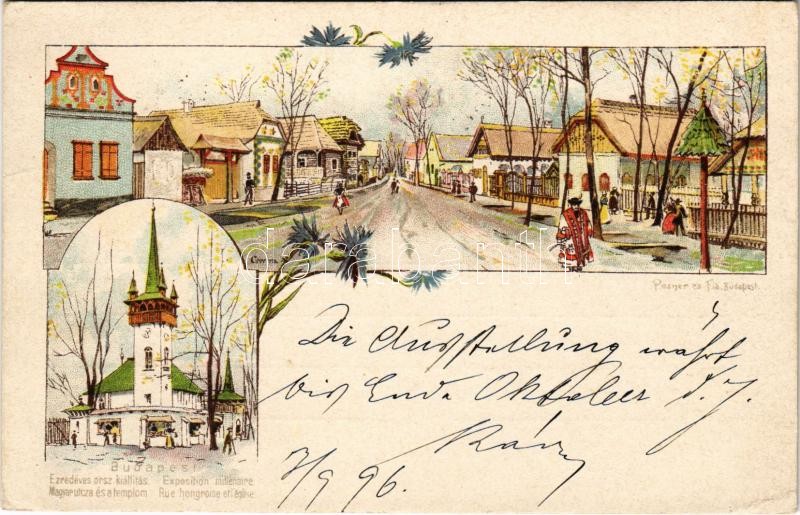 darabanth
Posner és Fia, Budapest.
Die Ausstellung währt
bis Ende Oktober d. J.
7/9 96.
Budapest
Ezredéves orsz. kiállítás. Exposition millénaire
Magyar utcza és a templom. Rue hongroise et l'église